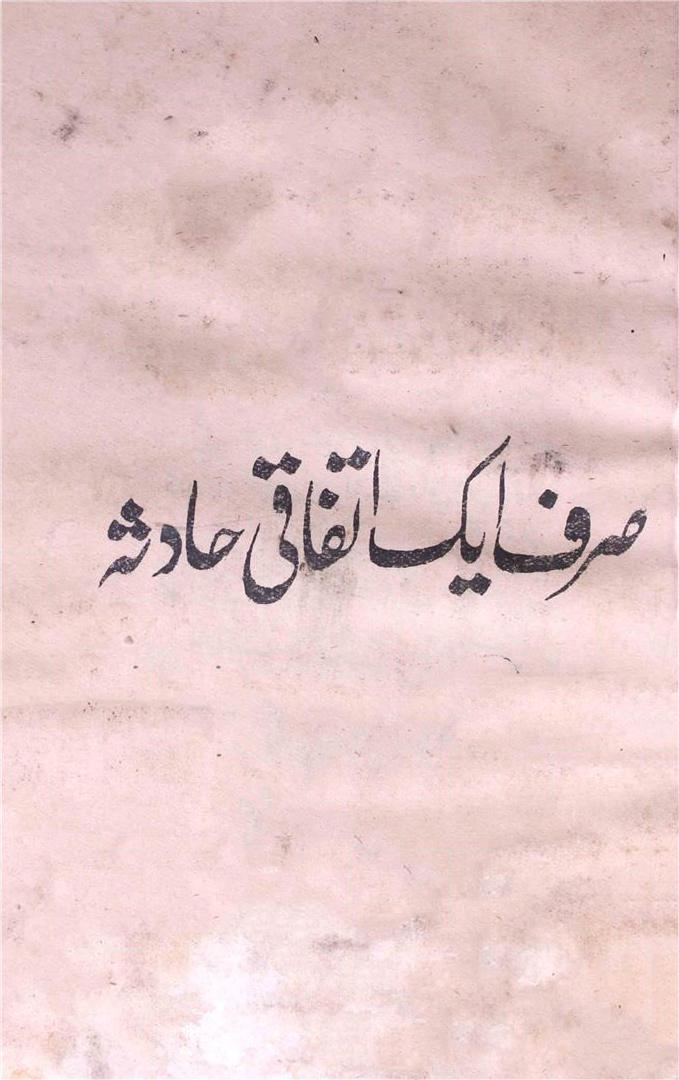 صرف ایک اتفاقی حادثہ